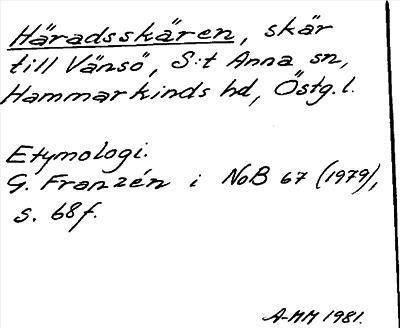 Häradsskären, skär
till Vänsö, S:t Anna sn,
Hammarkinds hd, Östg.l.
Etymologi.
G. Franzén i NoB 67 (1979),
s. 68f.
A-MM 1981.